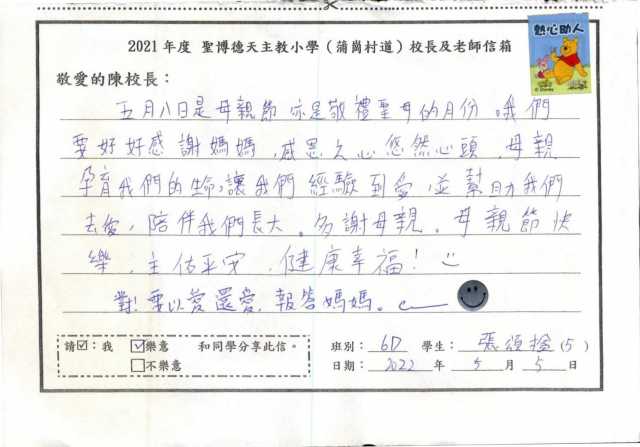 2021 年度 聖博德天主教小學（蒲崗村道）校長及老師信箱
熱心助人
敬愛的陳校長：
五月八日是母親節亦是敬禮聖母的月份。我們
要好好感謝媽媽，感恩之心悠然心頭，母親
孕育我們的生命，讓我們經驗到愛，並幫助我們
去愛，陪伴我們長大。多謝母親。母親節快
樂，主佑平安，健康幸福！
對！要以愛還愛，報答媽媽。
請☑：我 ☑樂意 和同學分享此信。
□不樂意
班別： 6D 學生： 張頌 (5)
日期： 2022 年 5 月 5 日
© Disney